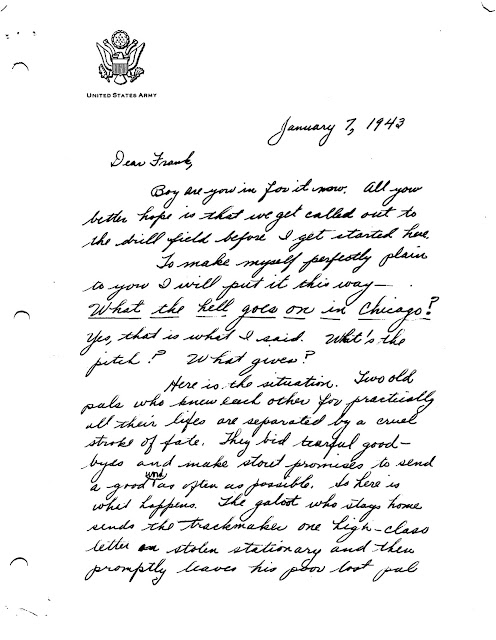 UNITED STATES ARMY
January 7, 1943
Dear Frank,
Boy are you in for it now. All you
better hope is that we get called out to
the drill field before I get started here.
To make myself perfectly plain
to you I will put it this way—
What the hell goes on in Chicago?
Yes, that is what I said. What's the
pitch? What gives?
Here is the situation. Two old
pals who knew each other for practically
all their lifes are separated by a cruel
stroke of fate. They bid tearful good-
byes and make stout promises to send
word
a good as often as possible. So here is
what happens. The galoot who stays home
sends the trackmaker one high-class
letter on stolen stationary and then
promptly leaves his poor lost pal